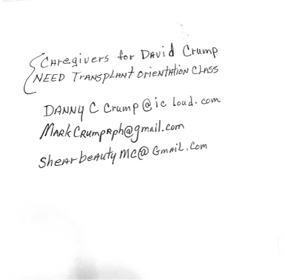 Caregivers for David Crump
NEED Transplant Orientation Class
DANNY C Crump@icloud.com
MarkCrumprph@gmail.com
Shearbeautymc@Gmail.com